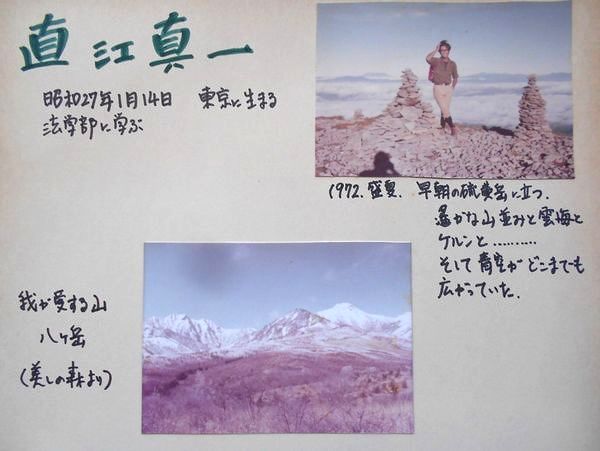 直江真一
昭和27年1月14日 東京に生まる
法学部に学ぶ
1972. 盛夏. 早朝の硫黄岳に立つ.
遥かな山並みと雲海と
ケルンと…………
そして青空がどこまでも
広がっていた.
我が愛する山
八ヶ岳
(美しの森より)